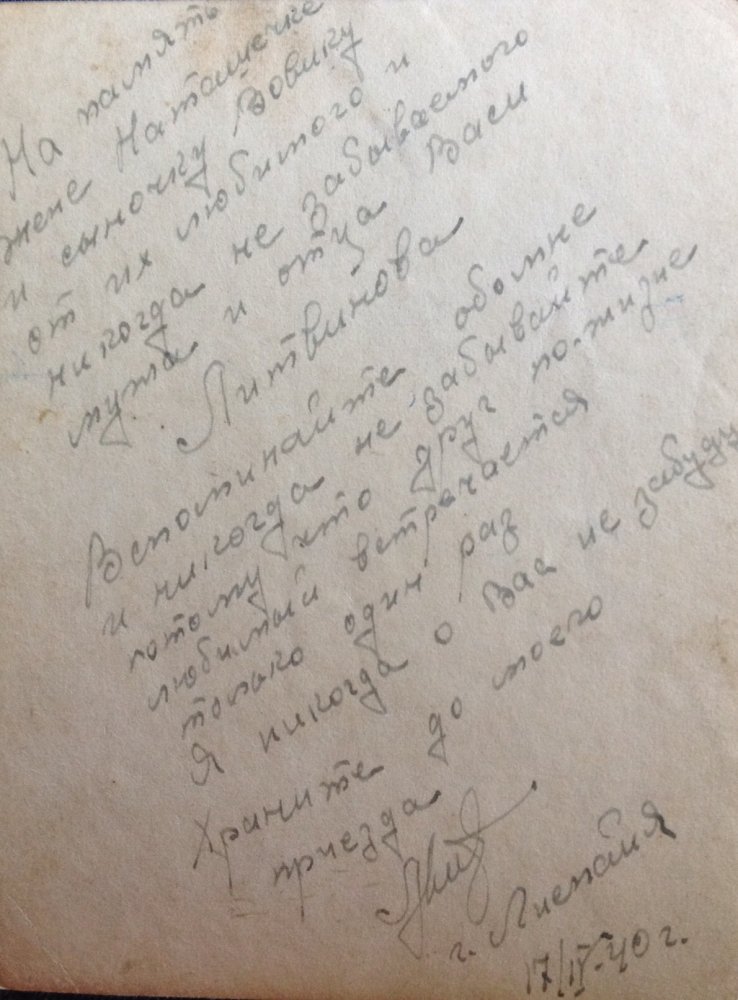 На память
жене Наташечке
и сыночку Вовику
от их любимого и
никогда не забываемого
мужа и отца Васи
Литвинова
Вспоминайте обо мне
и никогда не забывайте
потому что друг по-жизне
любимый встречается
только один раз
Я никогда о Вас не забуду
Храните до моего
приезда
г. Лиепайя
17/IV-40 г.